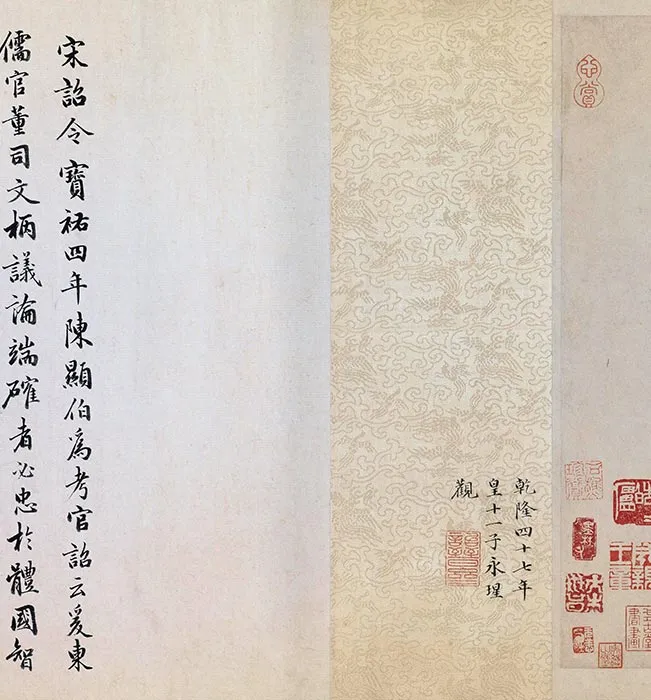 乾隆四十七年
皇十一子永瑆
觀
宋詔令寶祐四年陳顯伯爲考官詔云爰東
儒官董司文柄議論端確者必忠於體國智